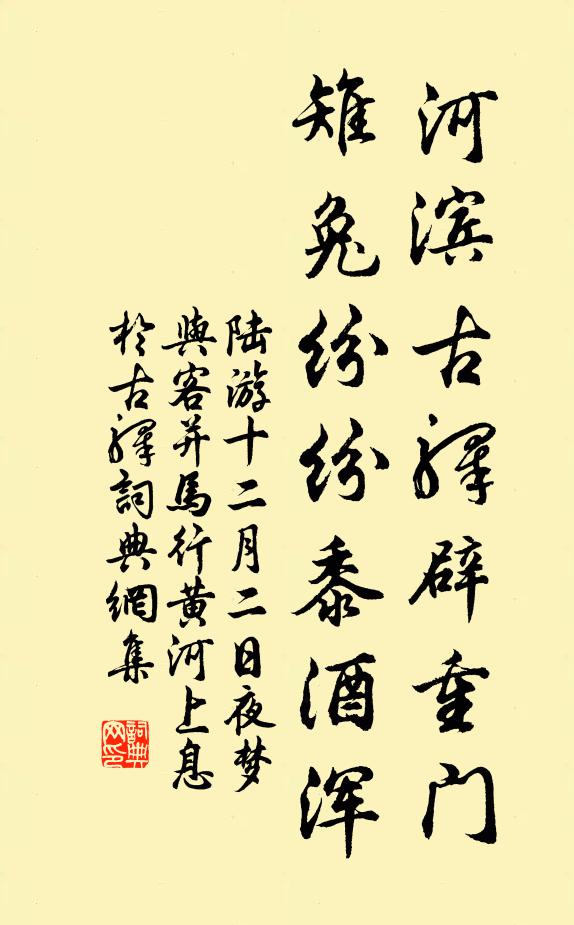 河滨古驿辟重门
雉兔纷纷黍酒浑
陆游十二月二日夜梦
與客并馬行黄河上息
於古驛詞典網集
詞典网印